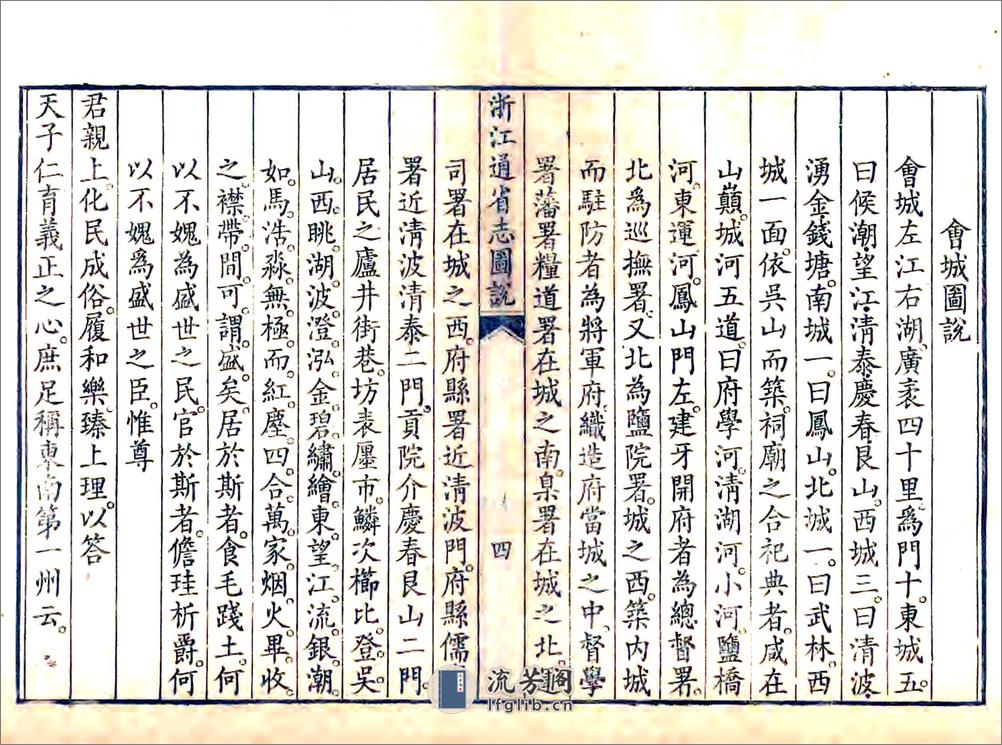 會城圖說
會城左江右湖廣袤四十里爲門十東城五
曰候潮望江清泰慶春艮山西城三曰清波
湧金錢塘南城一曰鳳山北城一曰武林西
城一面依吳山而築祠廟之合祀典者咸在
山巔城河五道曰府學河清湖河小河鹽橋
河東運河鳳山門左建牙開府者為總督署
北爲巡撫署又北為鹽院署城之西築內城
而駐防者為將軍府織造府當城之中督學
署藩署糧道署在城之南臬署在城之北運
浙江通省志圖說
四
司署在城之西府縣署近清波門府縣儒
署近清波清泰二門貢院介慶春艮山二門
居民之廬井街巷坊表廛市鱗次櫛比登吳
山西眺湖波澄泓金碧繡繪東望江流銀潮
如馬浩淼無極而紅塵四合萬家烟火畢收
之襟帶間可謂盛矣居於斯者食毛踐土何
以不媿為盛世之民官於斯者儋珪析爵何
以不媿爲盛世之臣惟尊
君親上化民成俗履和樂臻上理以答
天子仁育義正之心庶足稱東南第一州云
流芳閣
lfglib.cn